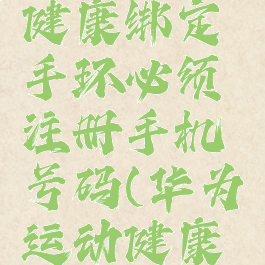 健康绑定
手环必须
注册手机
号码(华为
运动健康